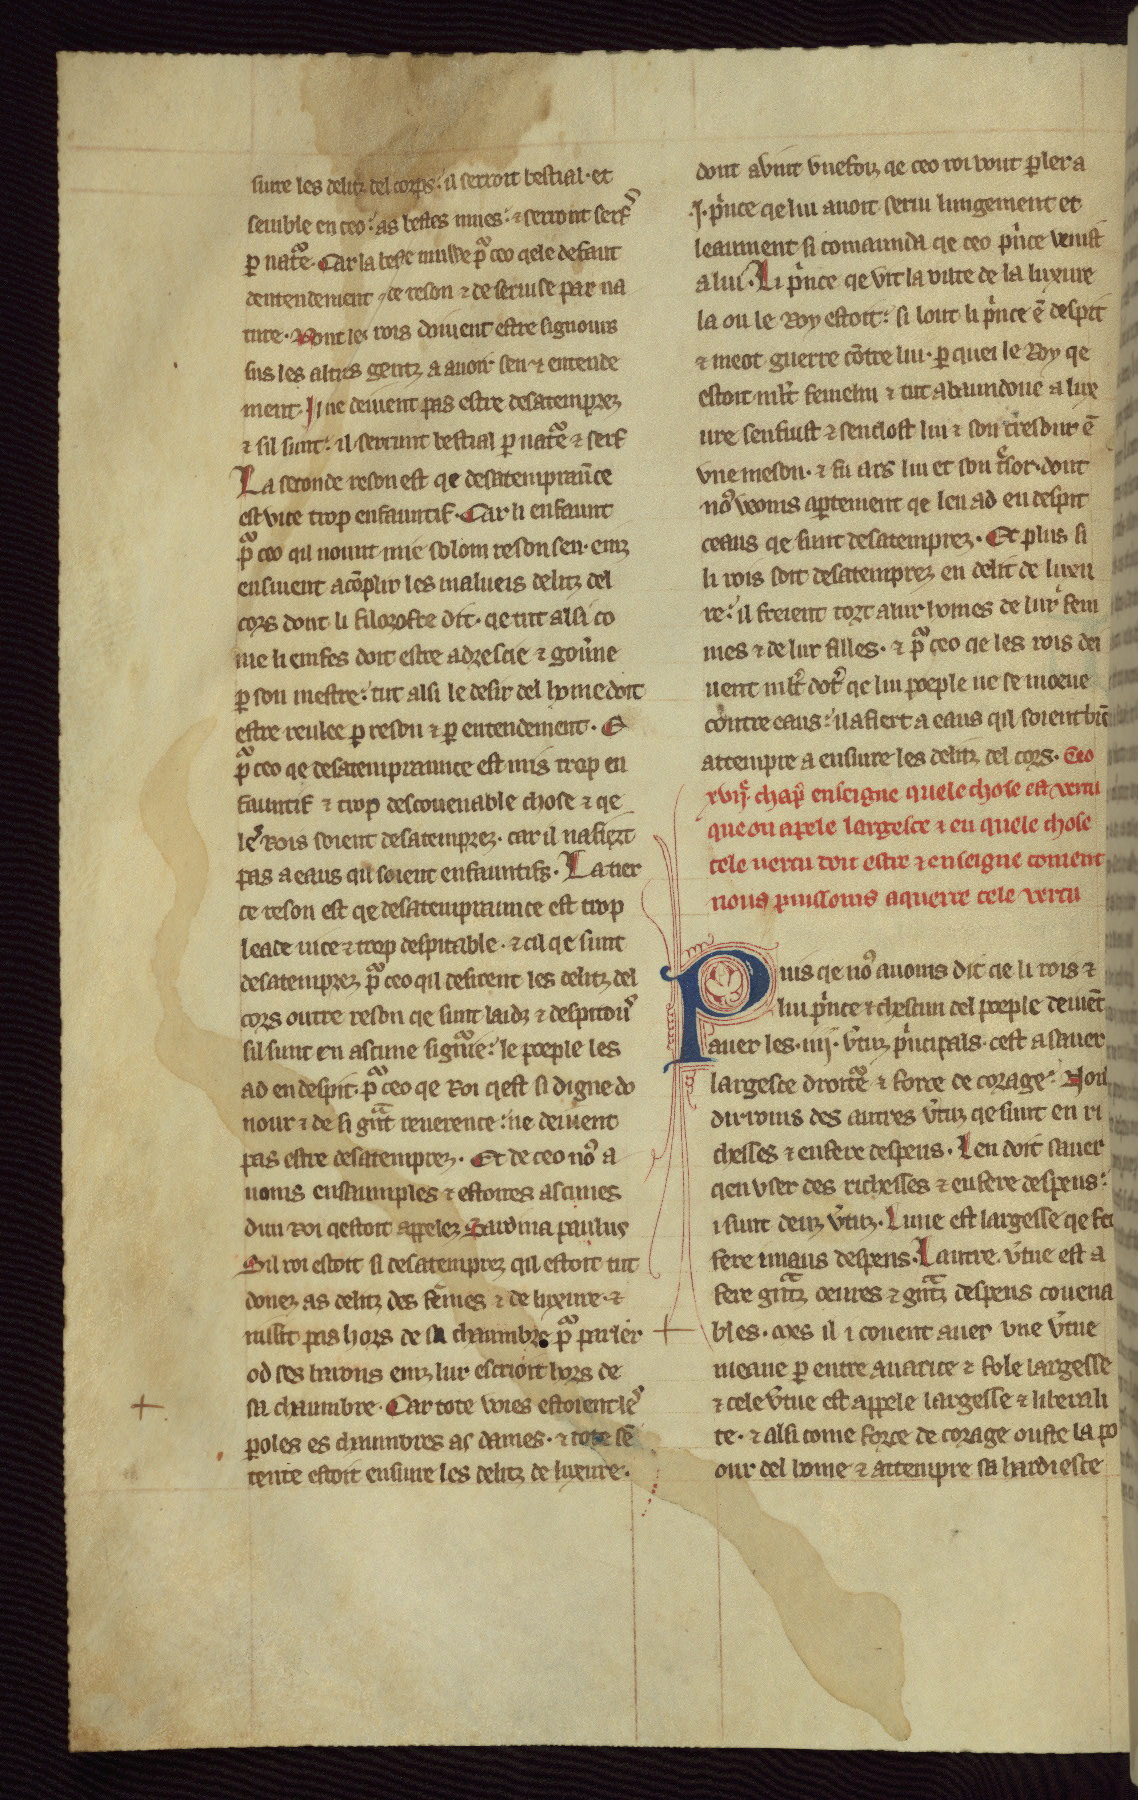 suire les delitz del corps: il serroit bestial· et
semble en ceo: as bestes mues: ⁊ serront serfˢ
ꝑ natᵉ· Car la beste mue pᵒ ceo qele defaut
dentendement ⁊ de reson ⁊ de seruise par na
ture· Dont les rois doiuent estre signours
sus les altres gentz a auoir sen ⁊ entende
ment· Il ne deiuent pas estre desatemprez
⁊ sil sunt: il serrunt bestial ꝑ natᵉ ⁊ serf
La seconde reson est qe desatempraūce
est vice trop enfauntif· Car li enfaunt
pᵒ ceo qil nount mie solom reson sen· einz
ensiuent acōplir les malueis delitz del
cors dont li filozofre dit· qe tut alsi co
me li emfes doit estre adrescie ⁊ gou̓ne
ꝑ son mestre: tut alsi le desir del home doit
estre reulee ꝑ reson ⁊ ꝑ entendement· E
pᵒ ceo qe desatempraunce est mis trop en
fauntif ⁊ trop descouenable chose ⁊ qe
leˢ Rois soient desatemprez· car il nafiert
pas a eaus qil soient enfauntifs· La tier
ce reson est qe desatempraunce est trop
leade uice ⁊ trop despitable· ⁊ cil qe sunt
desatemprez pᵒ ceo qil desirent les delitz del
cors outre reson qe sunt laidz ⁊ despitouˢ
sil sunt en ascune signᵘⁱᵉ: le poeple les
ad en despit· pᵒ ceo qe Roi qest si digne do
nour ⁊ de si gͣnt reuerence: ne deiuent
pas estre desatemprez· Et de ceo noˢ a
uoms ensaumples ⁊ estoires ascunes
dun Roi qestoit appelez Sardina paulus
Cil roi estoit si desatemprez qil estoit tut
donez as delitz des fēmes ⁊ de luxure· ⁊
nissit pas hors de sa chaumbre pᵒ parler
od ses barons einz lur escriōit hors de
sa chaumbre· Car tote voies estoient leˢ
ꝑoles es chaumbres as dames· ⁊ tote sē
tente estoit ensiure les delitz de luxure·
dont avint vnefoiz qe ceo roi vout ꝑler a
·I· pͥnce qe lui auoit serui lungement et
leaument si comaunda qe ceo pͥnce venist
a lui· Li pͥnce qe vit la uilte de la luxure
la ou le Roy estoit: si lout li pͥnce ē despit
⁊ meot guerre cōtre lui· ꝑ quei le Roy qe
estoit mlt̓ femelin ⁊ tut abaundone a lux
ure senfuist ⁊ senclost lui ⁊ son tresour ē
vne meson· ⁊ fu ars lui et son tͬsor· dont
noˢ veoms aꝑtement qe len ad en despit
ceaus qe sunt desatemprez· Et plus si
li rois soit desatemprez en delit de luxu
re: il freient tort a lur homes de lur fem
mes ⁊ de lur filles· ⁊ pᵒ ceo qe les rois dei
uent mlt̓ dot̓ qe lui poeple ne se moeue
contre eaus: il afiert a eaus qil soient biē
attempre a ensiure les delitz del cors· Ceo
xvij· chap̄ enseigne quele chose est vertu
que on apele largesce ⁊ en quele chose
tele uertu doit estre ⁊ enseigne coment
nous puissoms aquerre cele vertu
Puis qe noˢ auoms dit qe li rois ⁊
lui pͥnce ⁊ chescun del poeple deiuēt
auer les· iiij· v̓tuz pͥncipals· cest a sauer
largesce droitᵉ ⁊ force de corage· Noꝰ
dirroms des autres v̓tuz qe sunt en ri
chesses ⁊ en fere despens· Len doit sauer
qen vser des richesses ⁊ en fere despens:
i sunt deuz v̓tuz· Lune est largesse qe fet
fere maens despens· Lautre v̓tue est a
fere gͣntz oeures ⁊ gͣntz despens couena
bles· mes il i couent auer vne v̓tue
meane ꝑ entre auarice ⁊ fole largesse
⁊ cele v̓tue est appele largesse ⁊ liberali
te· ⁊ alsi come force de corage ouste la po
our del home ⁊ attempre sa hardiesce